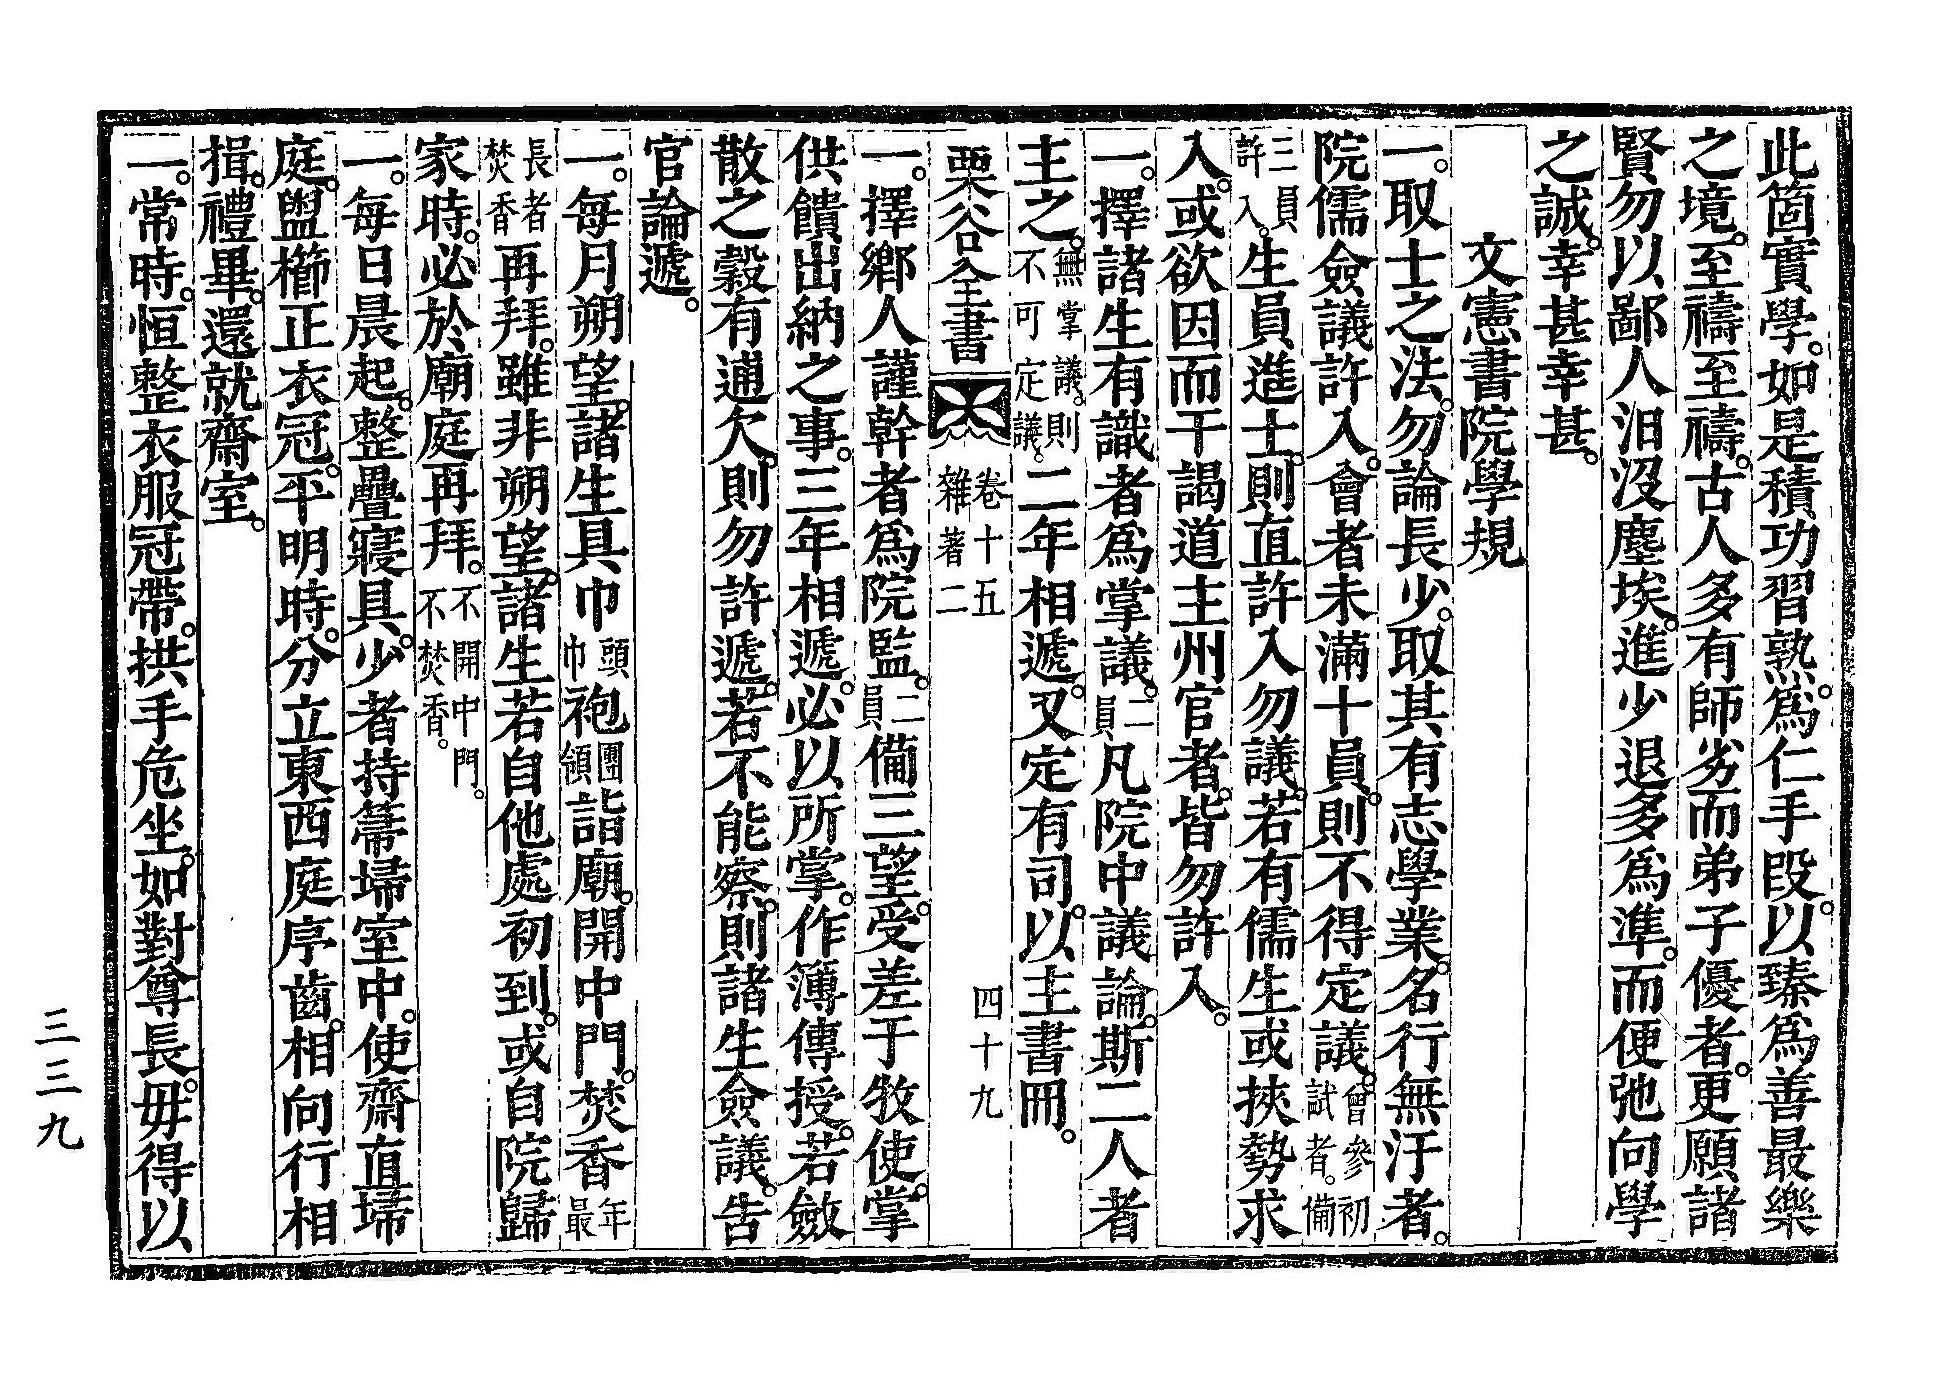 此箇實學。如是積功習熟。爲仁手段。以臻爲善最樂
之境。至禱至禱。古人多有師劣而弟子優者。更願諸
賢勿以鄙人汨沒塵埃。進少退多爲準。而便弛向學
之誠。幸甚幸甚。
文憲書院學規
一。取士之法。勿論長少。取其有志學業。名行無汙者。
院儒僉議許入。會者未滿十員。則不得定議。曾參初試者。備
三員許入。生員進士。則直許入勿議。若有儒生或挾勢求
入。或欲因而干謁道主州官者。皆勿許入。
一。擇諸生有識者爲掌議。二員凡院中議論。斯二人者
主之。無掌議。則不可定議。二年相遞。又定有司。以主書冊。
栗谷全書 卷十五 雜著二 四十九
一。擇鄕人謹幹者爲院監。二員備三望。受差于牧使。掌
供饋出納之事。三年相遞。必以所掌。作簿傳授。若斂
散之穀有逋欠。則勿許遞。若不能察。則諸生僉議。告
官論遞。
一。每月朔望。諸生具巾頭巾袍團領詣廟。開中門。焚香年最
長者焚香再拜。雖非朔望。諸生若自他處初到。或自院歸
家時。必於廟庭再拜。不開中門。不焚香。
一。每日晨起。整疊寢具。少者持箒埽室中。使齋直埽
庭。盥櫛正衣冠。平明時。分立東西庭序齒。相向行相
揖。禮畢。還就齋室。
一。常時。恒整衣服冠帶。拱手危坐。如對尊長。毋得以
三三九